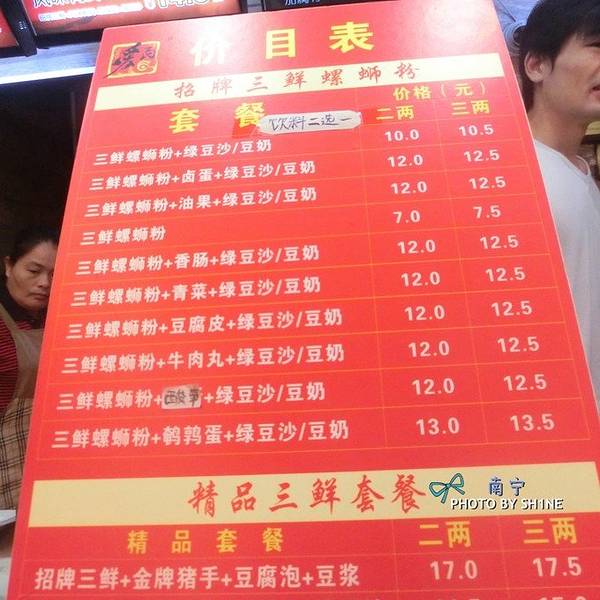 价目表
招牌三鲜螺蛳粉
价格（元）
套餐 饮料二选一 二两 三两
三鲜螺蛳粉+绿豆沙/豆奶 10.0 10.5
三鲜螺蛳粉+卤蛋+绿豆沙/豆奶 12.0 12.5
三鲜螺蛳粉+油果+绿豆沙/豆奶 12.0 12.5
三鲜螺蛳粉 7.0 7.5
三鲜螺蛳粉+香肠+绿豆沙/豆奶 12.0 12.5
三鲜螺蛳粉+青菜+绿豆沙/豆奶 12.0 12.5
三鲜螺蛳粉+豆腐皮+绿豆沙/豆奶 12.0 12.5
三鲜螺蛳粉+牛肉丸+绿豆沙/豆奶 12.0 12.5
三鲜螺蛳粉+ +绿豆沙/豆奶 12.0 12.5
三鲜螺蛳粉+鹌鹑蛋+绿豆沙/豆奶 13.0 13.5
精品三鲜套餐
精品套餐 二两 三两
招牌三鲜+金牌猪手+豆腐泡+豆浆 17.0 17.5
南宁
PHOTO BY SH1NE